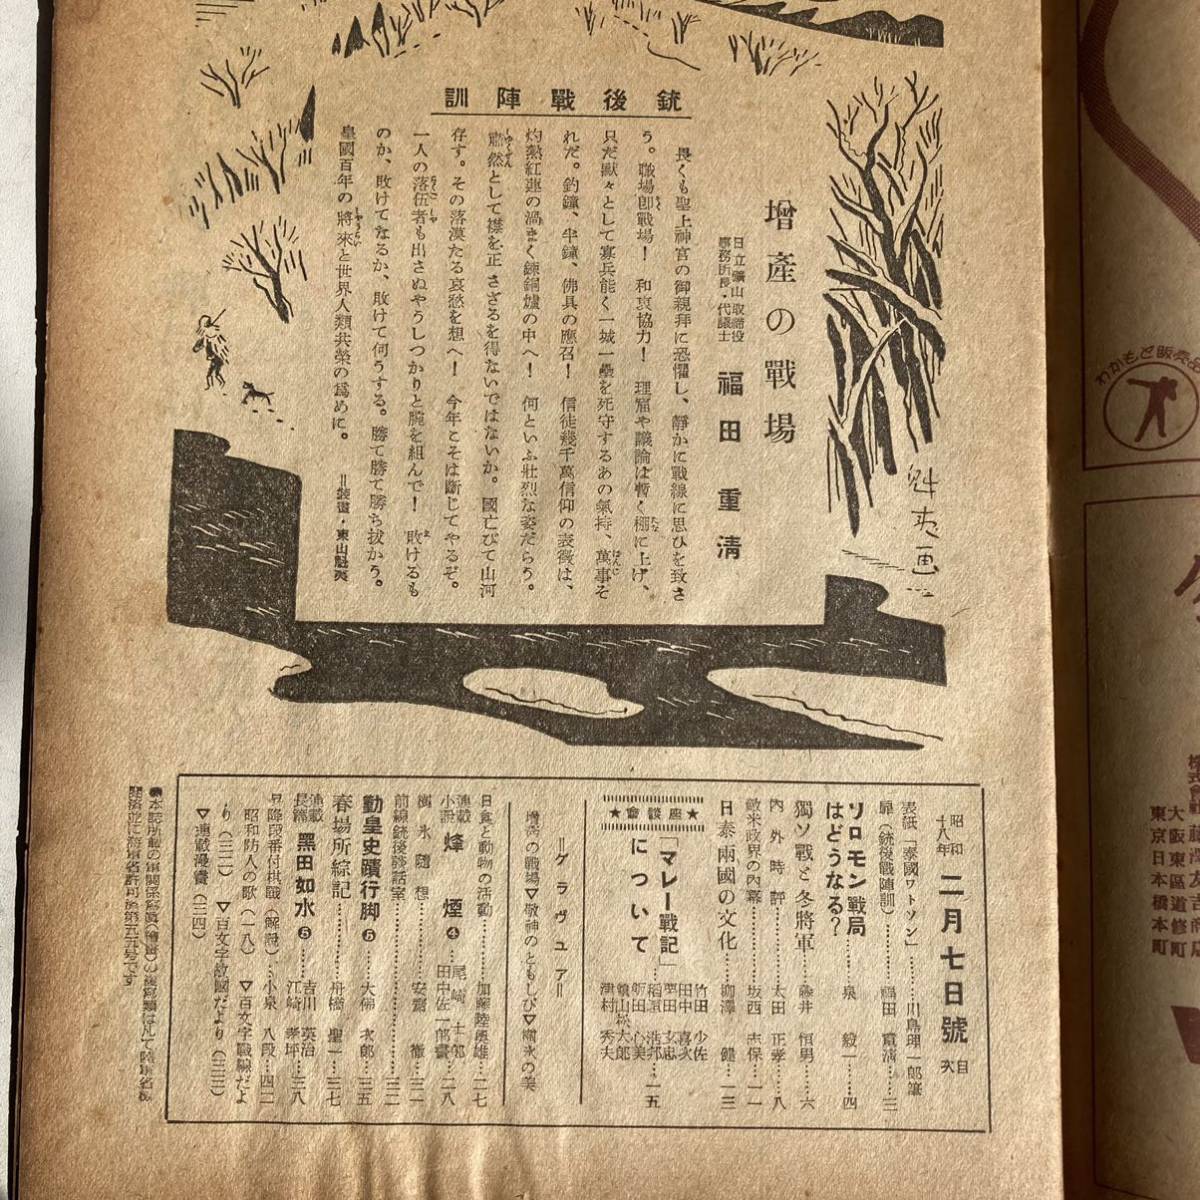 銃後戰陣訓
增產の戰場
日立鑛山取締役
事務所長・代議士
福田重清
長くも聖上神宮の御親拜に恐懼し、靜かに戰線に思ひを致さ
う。職場卽戰場! 和衷協力! 理窟や議論は暫く棚に上げ、
只だ默々として寡兵能く一城一壘を死守するあの氣持、萬事そ
れだ。釣鐘、半鐘、佛具の應召! 信徒幾千萬信仰の表徵は、
灼熱紅蓮の渦まく鎔銅爐の中へ! 何といふ壯烈な姿だらう。
肅然として襟を正さざるを得ないではないか。國亡びて山河
存す。その落漠たる哀愁を想へ! 今年こそは斷じてやるぞ。
一人の落伍者も出さぬやうしつかりと腕を組んで! 敗けるも
のか、敗けてなるか、敗けて何うする。勝て勝て勝ち拔かう。
皇國百年の將來と世界人類共榮の爲めに。
=繪・東山魁夷
魁夷画
昭和十八年 二月七日號 目次
表紙「泰國ワトソン」……川島理一郎筆
扉(銃後戰陣訓)……福田重淸…三
ソロモン戰局はどうなる?……泉毅一…四
獨ソ戰と冬將軍……藤井恒男…六
內外時評……太田正孝…八
敵米政界の內幕……坂西志保…一一
日泰兩國の文化……柳澤健…一三
★座談會★
「マレー戰記」について
竹田少佐
田中喜次
栗田玄忠
稻原浩邦…一五
飯田心美
津村秀夫
=グラヴユア=
增產の戰場▽敬神のともしび▽樹氷の美
日食と動物の活動……加藤陸奧雄…二七
連載小說 烽煙 ④ 尾崎士郎 田中佐一郎畫…二八
樹氷隨想……安齋徹…三一
前線銃後談話室……三二
勤皇史蹟行脚 ⑤……大佛次郎…三五
春場所綜記……舟橋聖一…三七
連載長篇 黑田如水 ⑤ 吉川英治 江崎孝坪…三八
昇降段番付棋戰(解說)……小泉八段…四二
昭和防人の歌(一八) ▽百文字戰線だよ
り(三二) ▽百文字故國だより(三三)
▽連載漫畫(三四)
わかもと販賣
大阪東區道修町
東京日本橋本町